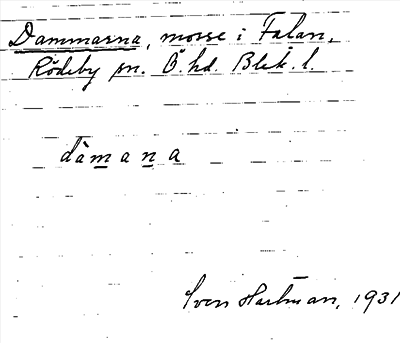 Dammarna, mosse i Falan,
Rödeby sn. Ö hd. Blek. l.
dàmana
Sven Hartman, 1931